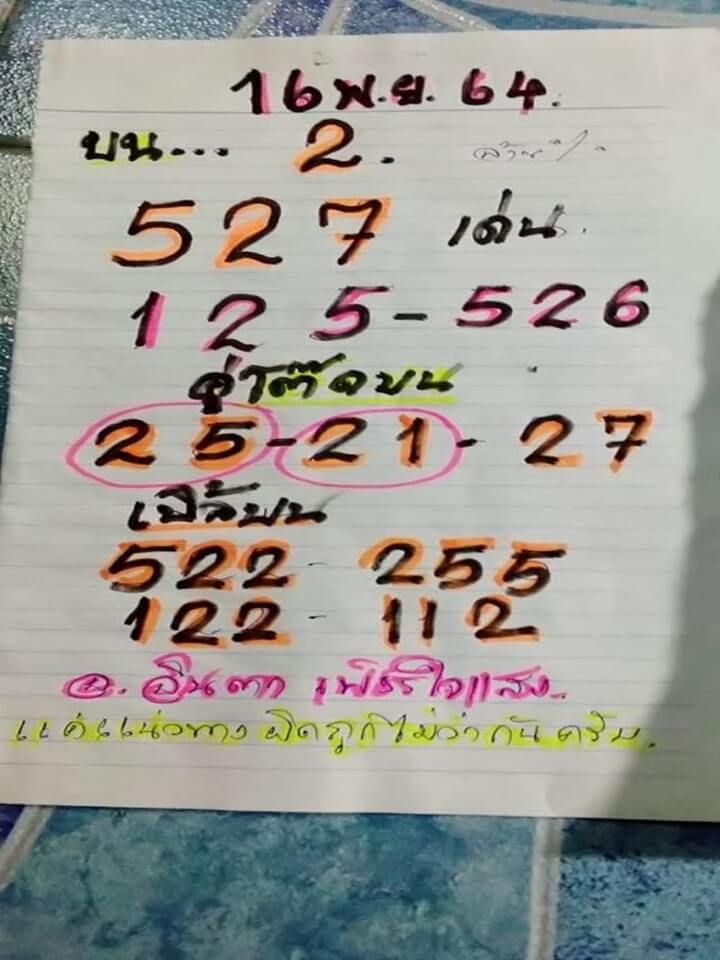 16 พ.ย. 64.
บน... 2.
527 เด่น.
125-526
คู่โต๊ดบน
25-21-27
เบิ้ลบน
522-255
122-112
อ. อินตา เพชรใจแสง.
แค่แนวทาง ผิดถูกไม่ว่ากันครับ.